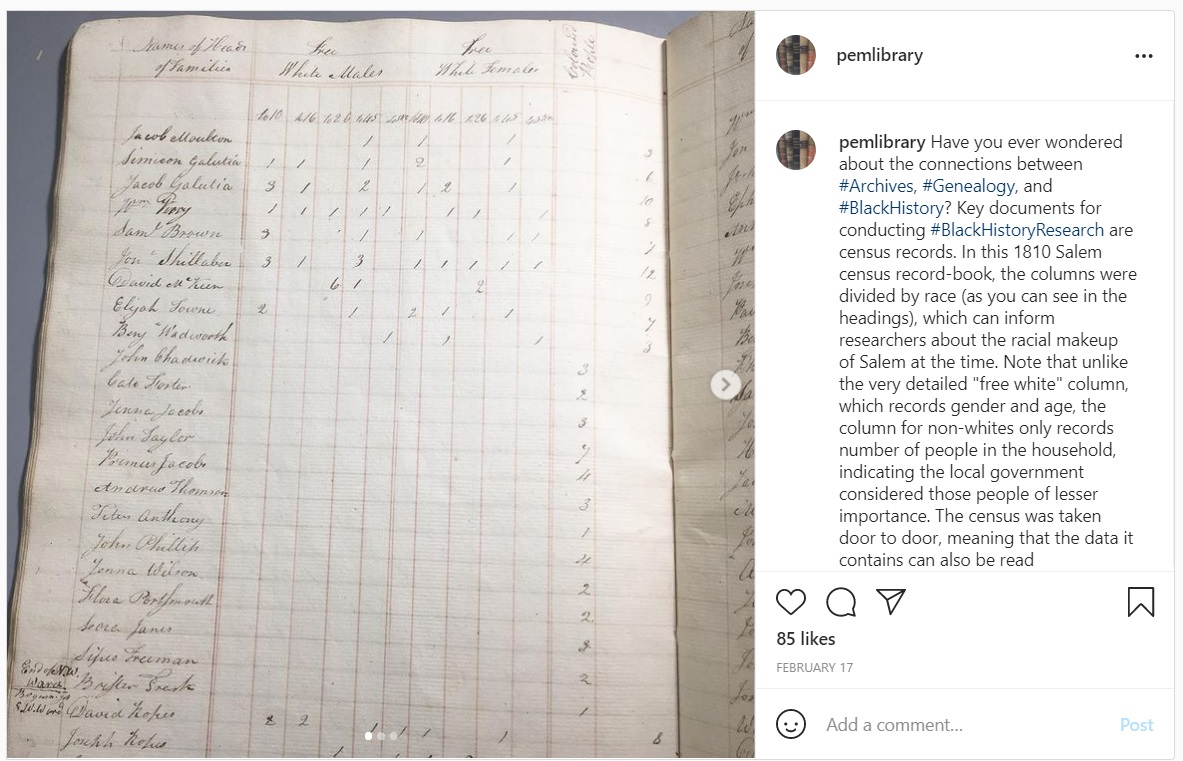 Names of Heads
of Families
Free
White Males
Free
White Females
Coloured
People
Jacob Moulton 1 1 1 3
Simieon Galutia 1 1 2 1 6
Jacob Galutia 3 1 2 1 2 1 10
Wm Perry 1 1 1 1 1 1 1 1 8
Saml Brown 3 1 1 1 1 7
Jona Shillaber 3 1 3 1 1 1 1 1 12
David McKeen 6 1 2 9
Elijah Towne 2 1 2 1 1 7
Benj Wadworth 1 1 1 3
John Chadwick 3
Cato Foster 2
Jenna Jacobs 3
John Taylor 7
Primus Jacobs 4
Andrus Thomson 3
Titus Anthony 1
John Phillip 4
Jenna Wilson 2
Flora Portsmouth 2
James 3
Sipeo Freeman 2
1
David Ropes 2
Joseph Ropes 8
pemlibrary
pemlibrary Have you ever wondered
about the connections between
#Archives, #Genealogy, and
#BlackHistory? Key documents for
conducting #BlackHistoryResearch are
census records. In this 1810 Salem
census record-book, the columns were
divided by race (as you can see in the
headings), which can inform
researchers about the racial makeup
of Salem at the time. Note that unlike
the very detailed "free white" column,
which records gender and age, the
column for non-whites only records
number of people in the household,
indicating the local government
considered those people of lesser
importance. The census was taken
door to door, meaning that the data it
contains can also be read
85 likes
FEBRUARY 17
Add a comment...
Post